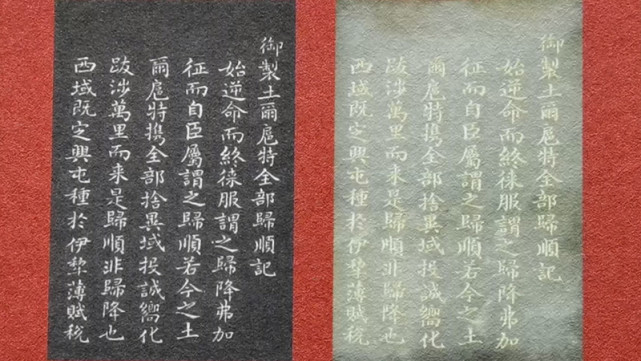 御製土爾扈特全部歸順記
始逆命而終徠服謂之歸降弗加
征而自臣屬謂之歸順若今之土
爾扈特攜全部捨異域投誠嚮化
跋涉萬里而来是歸順非歸降也
西域既定興屯種於伊犂薄賦稅
御製土爾扈特全部歸順記
始逆命而終徠服謂之歸降弗加
征而自臣屬謂之歸順若今之土
爾扈特攜全部捨異域投誠嚮化
跋涉萬里而来是歸順非歸降也
西域既定興屯種於伊犂薄賦稅